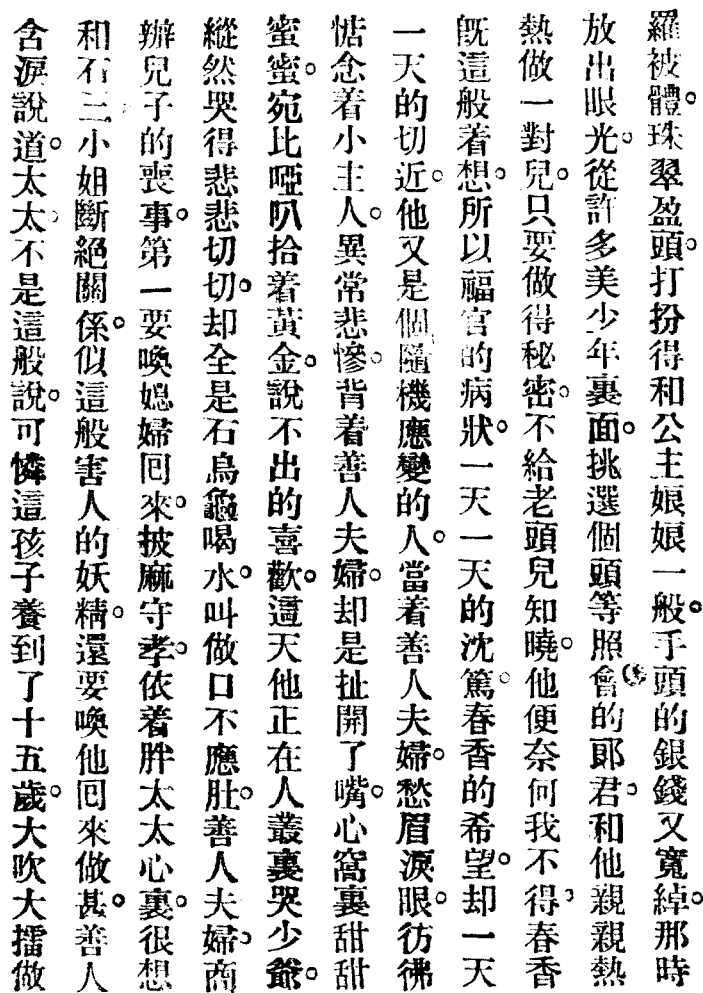 羅被體。珠翠盈頭。打扮得和公主娘娘一般。手頭的銀錢又寬綽。那時
放出眼光。從許多美少年裏面。挑選個頭等照會的郞君。和他親親熱
熱做一對兒。只要做得秘密。不給老頭兒知曉。他便奈何我不得。春香
旣這般着想。所以福官的病狀。一天一天的沈篤。春香的希望。却一天
一天的切近。他又是個隨機應變的人。當着善人夫婦。愁眉淚眼。彷彿
惦念着小主人。異常悲慘。背着善人夫婦。却是扯開了嘴。心窩裏甜甜
蜜蜜。宛比啞叭拾着黃金。說不出的喜歡。這天他正在人叢裏哭少爺。
縱然哭得悲悲切切。却全是石烏龜喝水。叫做口不應肚。善人夫婦。商
辦兒子的喪事。第一要喚媳婦囘來。披麻守孝。依着胖太太心裏。很想
和石三小姐斷絕關係。似這般害人的妖精。還要喚他囘來做甚。善人
含淚說道。太太。不是這般說。可憐這孩子養到了十五歲。大吹大擂做